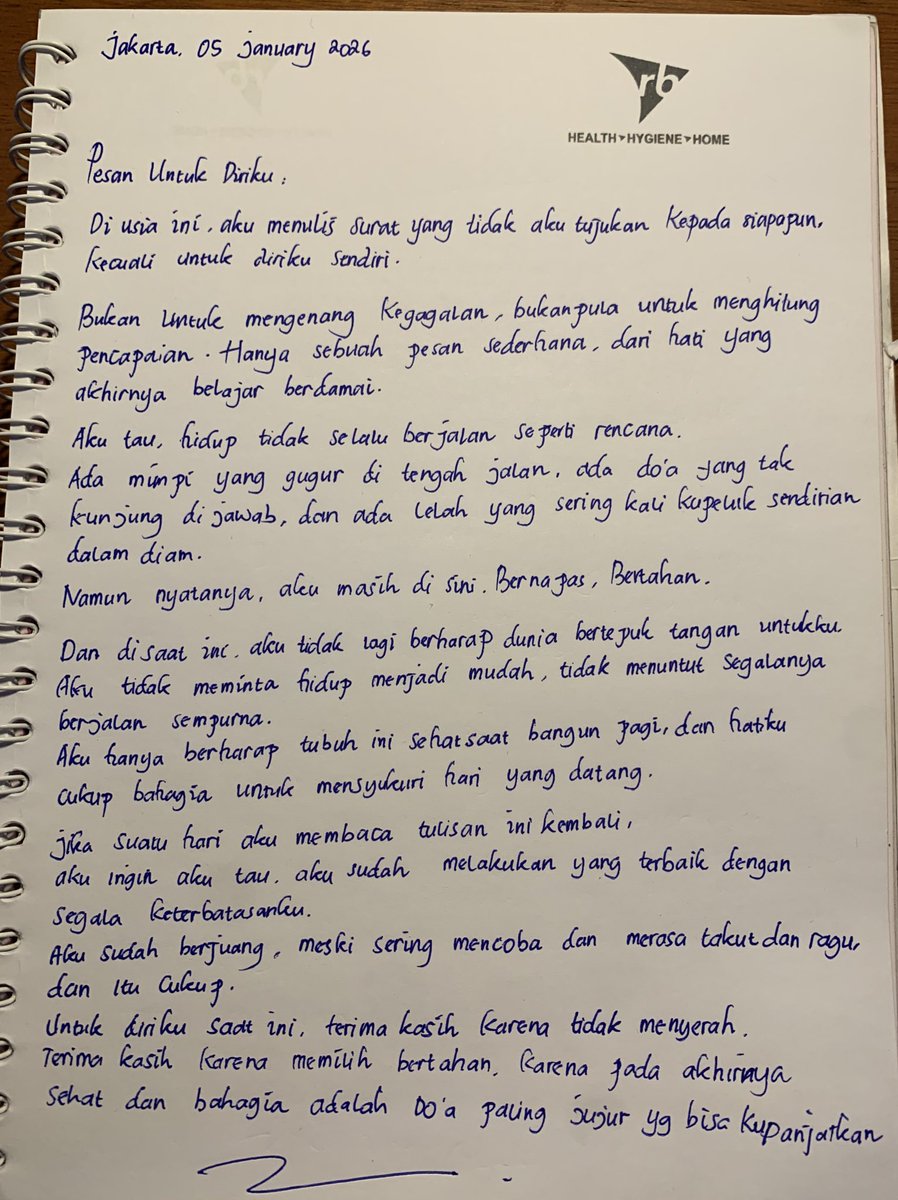 Jakarta, 05 January 2026
rb
HEALTH HYGIENE HOME
Pesan Untuk Diriku :
Di usia ini, aku menulis surat yang tidak aku tujukan kepada siapapun,
kecuali untuk diriku sendiri.
Bukan untuk mengenang kegagalan, bukanpula untuk menghitung
pencapaian. Hanya sebuah pesan sederhana, dari hati yang
akhirnya belajar berdamai.
Aku tau, hidup tidak selalu berjalan seperti rencana.
Ada mimpi yang gugur di tengah jalan, ada do'a yang tak
kunjung di jawab, dan ada lelah yang sering kali kupeluk sendirian
dalam diam.
Namun nyatanya, aku masih di sini. Bernapas, Bertahan.
Dan disaat ini, aku tidak lagi berharap dunia bertepuk tangan untukku.
Aku tidak meminta hidup menjadi mudah, tidak menuntut segalanya
berjalan sempurna.
Aku hanya berharap tubuh ini sehat saat bangun pagi, dan hatiku
cukup bahagia untuk mensyukuri hari yang datang.
jika suatu hari aku membaca tulisan ini kembali,
aku ingin aku tau, aku sudah melakukan yang terbaik dengan
segala keterbatasanku.
Aku sudah berjuang, meski sering mencoba dan merasa takut dan ragu,
dan itu cukup.
Untuk diriku saat ini, terima kasih karena tidak menyerah.
Terima kasih karena memilih bertahan, karena pada akhirnya
sehat dan bahagia adalah Do'a paling jujur yg bisa kupanjatkan